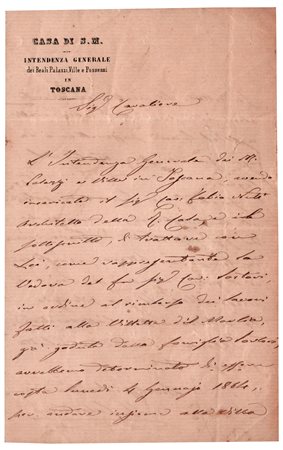 CASA DI S.M.
INTENDENZA GENERALE
dei Reali Palazzi, Ville e Possessi
IN
TOSCANA
Sigr Cavaliere
L'Intendenza Generale dei R.
Palazzi e Ville in Toscana, avendo
incaricato il Sigr Cav. Fabio Nuti
Architetto della R. Casa e il
sottoscritto, di trattare con
Lei, come rappresentante la
Vedova del fu Sigr Cav. Sartori,
in ordine al rimborso dei lavori
fatti alla Villetta del
già goduta dalla famiglia Sartori,
avrebbero determinato di essere
costà lunedì 4 Gennajo 1864,
per andare insieme alla Villa